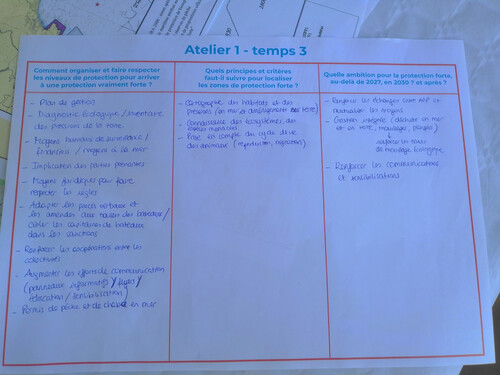 Atelier 1 - temps 3
Comment organiser et faire respecter
les niveaux de protection pour arriver
à une protection vraiment forte ?
- Plan de gestion
- Diagnostic écologique / inventaire
des pressions de la zone
- Moyens humains de surveillance /
financiers / moyens à la mer
- Implication des parties prenantes
- Moyens juridiques pour faire
respecter les règles
- Adapter les peines
et les amendes aux tailles des bateaux /
cibler les capitaines de bateaux
dans les sanctions
- Renforcer les coopérations entre les
collectivités
- Augmenter les efforts de communication
(panneaux informatifs /
éducation / sensibilisation)
- Permis de pêche et de chasse en mer
Quels principes et critères
faut-il suivre pour localiser
les zones de protection forte ?
- Cartographie des habitats et des
pressions (en mer et développement sur terre)
- Connaissance des écosystèmes, des
- Prise en compte du cycle de vie
des animaux (reproduction, migrations)
Quelle ambition pour la protection forte,
au-delà de 2027, en 2030 ? et après ?
- Renforcer les échanges entre AMP et
- Gestion intégrée (
et en terre, mouillages, plages)
de mouillage écologique
- Renforcer les communications
et sensibilisations